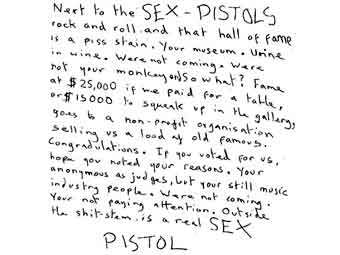 Next to the SEX-PISTOLS
rock and roll and that hall of fame
is a piss stain. Your museum. Urine
in wine. Were not coming. Were
not your monkeys. So what? Fame
at $25,000 if we paid for a table,
or $15000 to squeak up in the gallery,
goes to a non-profit organisation
selling us a load of old famous.
Congratulations. If you voted for us,
hope you noted your reasons. Your
anonymous as judges, but your still music
industry people. Were not coming.
Your not paying attention. Outside
the shit-stem is a real SEX
PISTOL